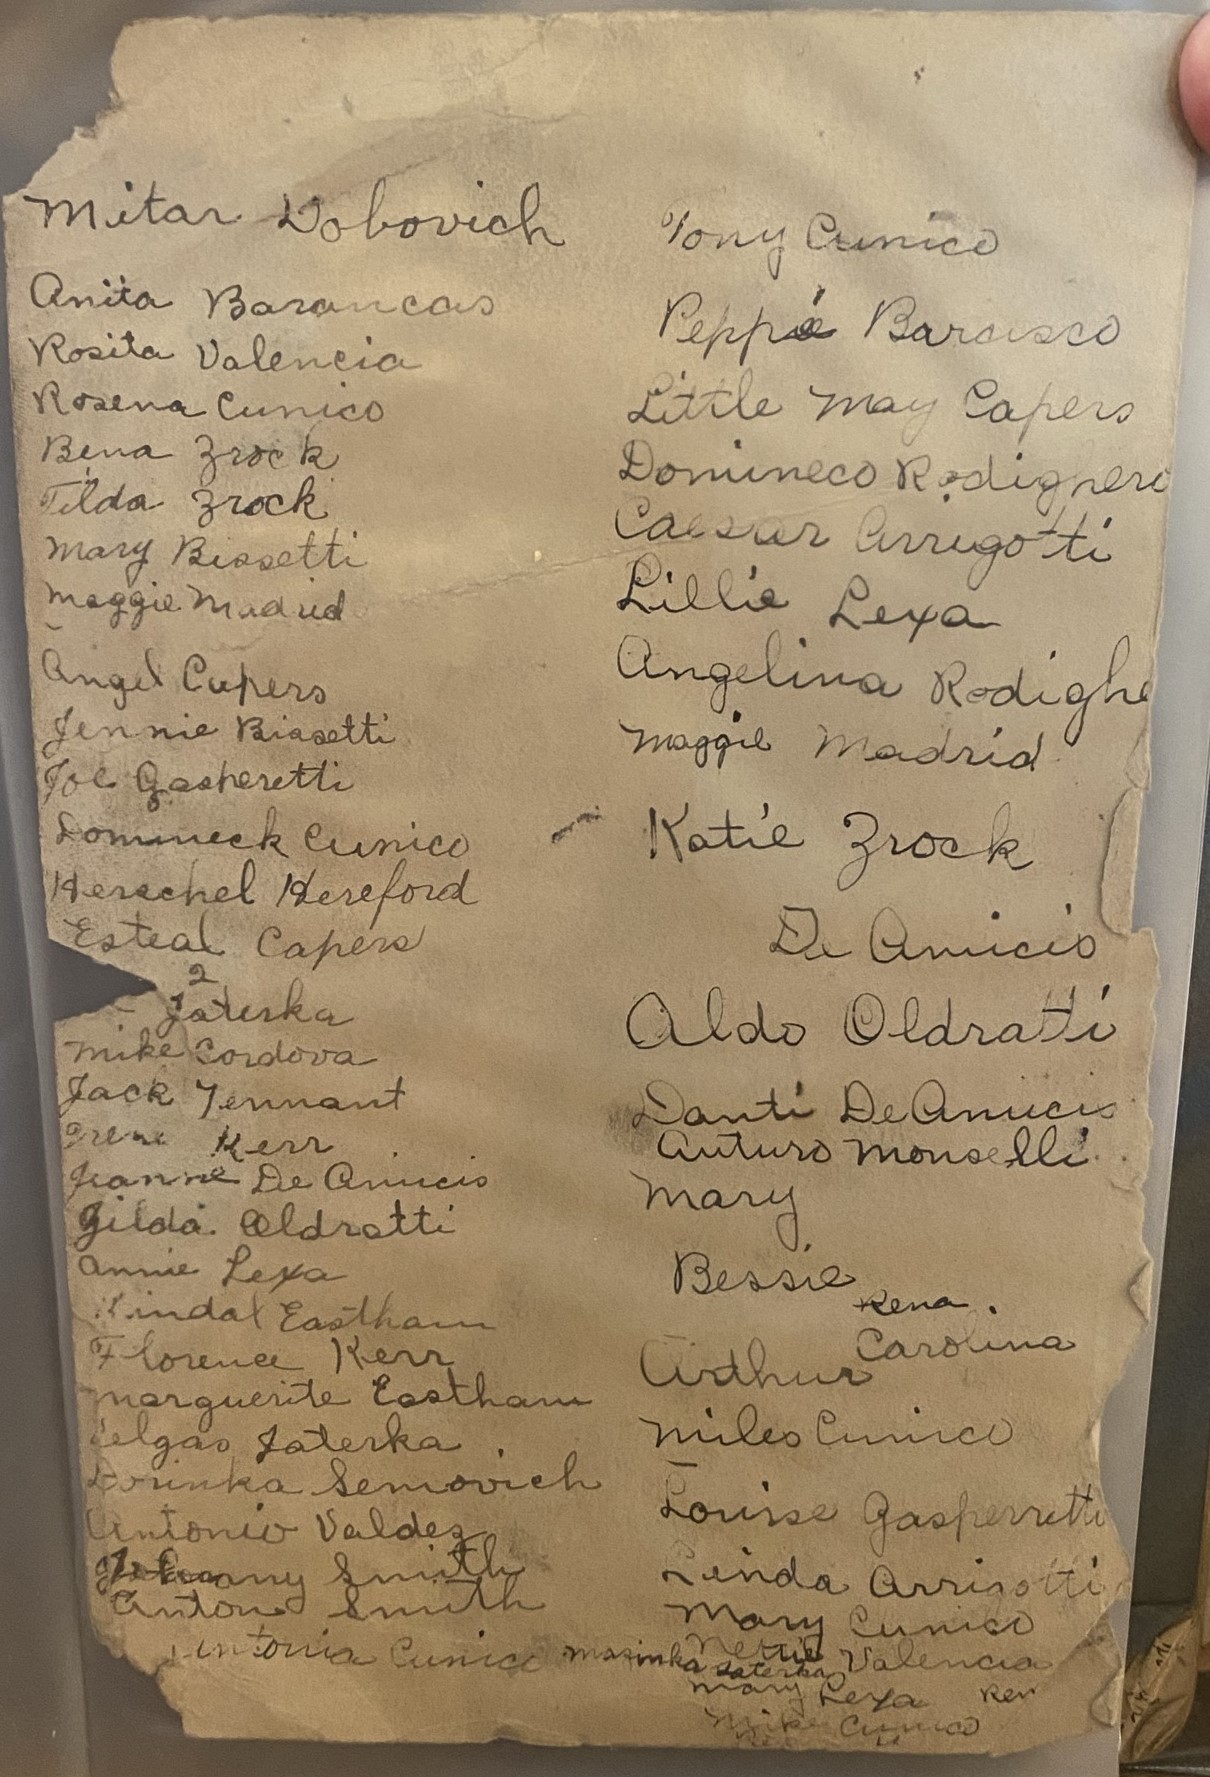 Mitar Vobovich
Anita Barancas
Rosita Valencia
Rosena Cunico
Bena Zrock
Tilda Zrock
Mary Bissetti
Maggie Madrid
Angel Cupers
Jennie Biasetti
Joe Gasperetti
Domineck Cunico
Herschel Hereford
Esteal Capers
2
Jaterka
Mike Cordova
Jack Tennant
Irene Kerr
Jeanne De Amicis
Gilda Oldratti
Annie Lexa
Kindal Eastham
Florence Kerr
Marguerite Eastham
Jaterka
Dorinka Semovich
Antonio Valdez
Smith
Anton Smith
Antonia Cunico
Tony Cunico
Peppie Barcisco
Little May Capers
Domineco Rodignero
Caesar Arrigotti
Lillie Lexa
Angelina Rodighe
Maggie Madrid
Katie Zrock
De Amicis
Aldo Oldratti
Danti DeAmicis
Auturo Monselli
Mary
Bessie
Rena
Carolina
Arthur
Miles Cunico
Louise Gasperretti
Linda Arrigotti
Mary Cunico
Nettie Valencia
Masinka Jaterka
Mary Lexa Ren
Mike Cunico